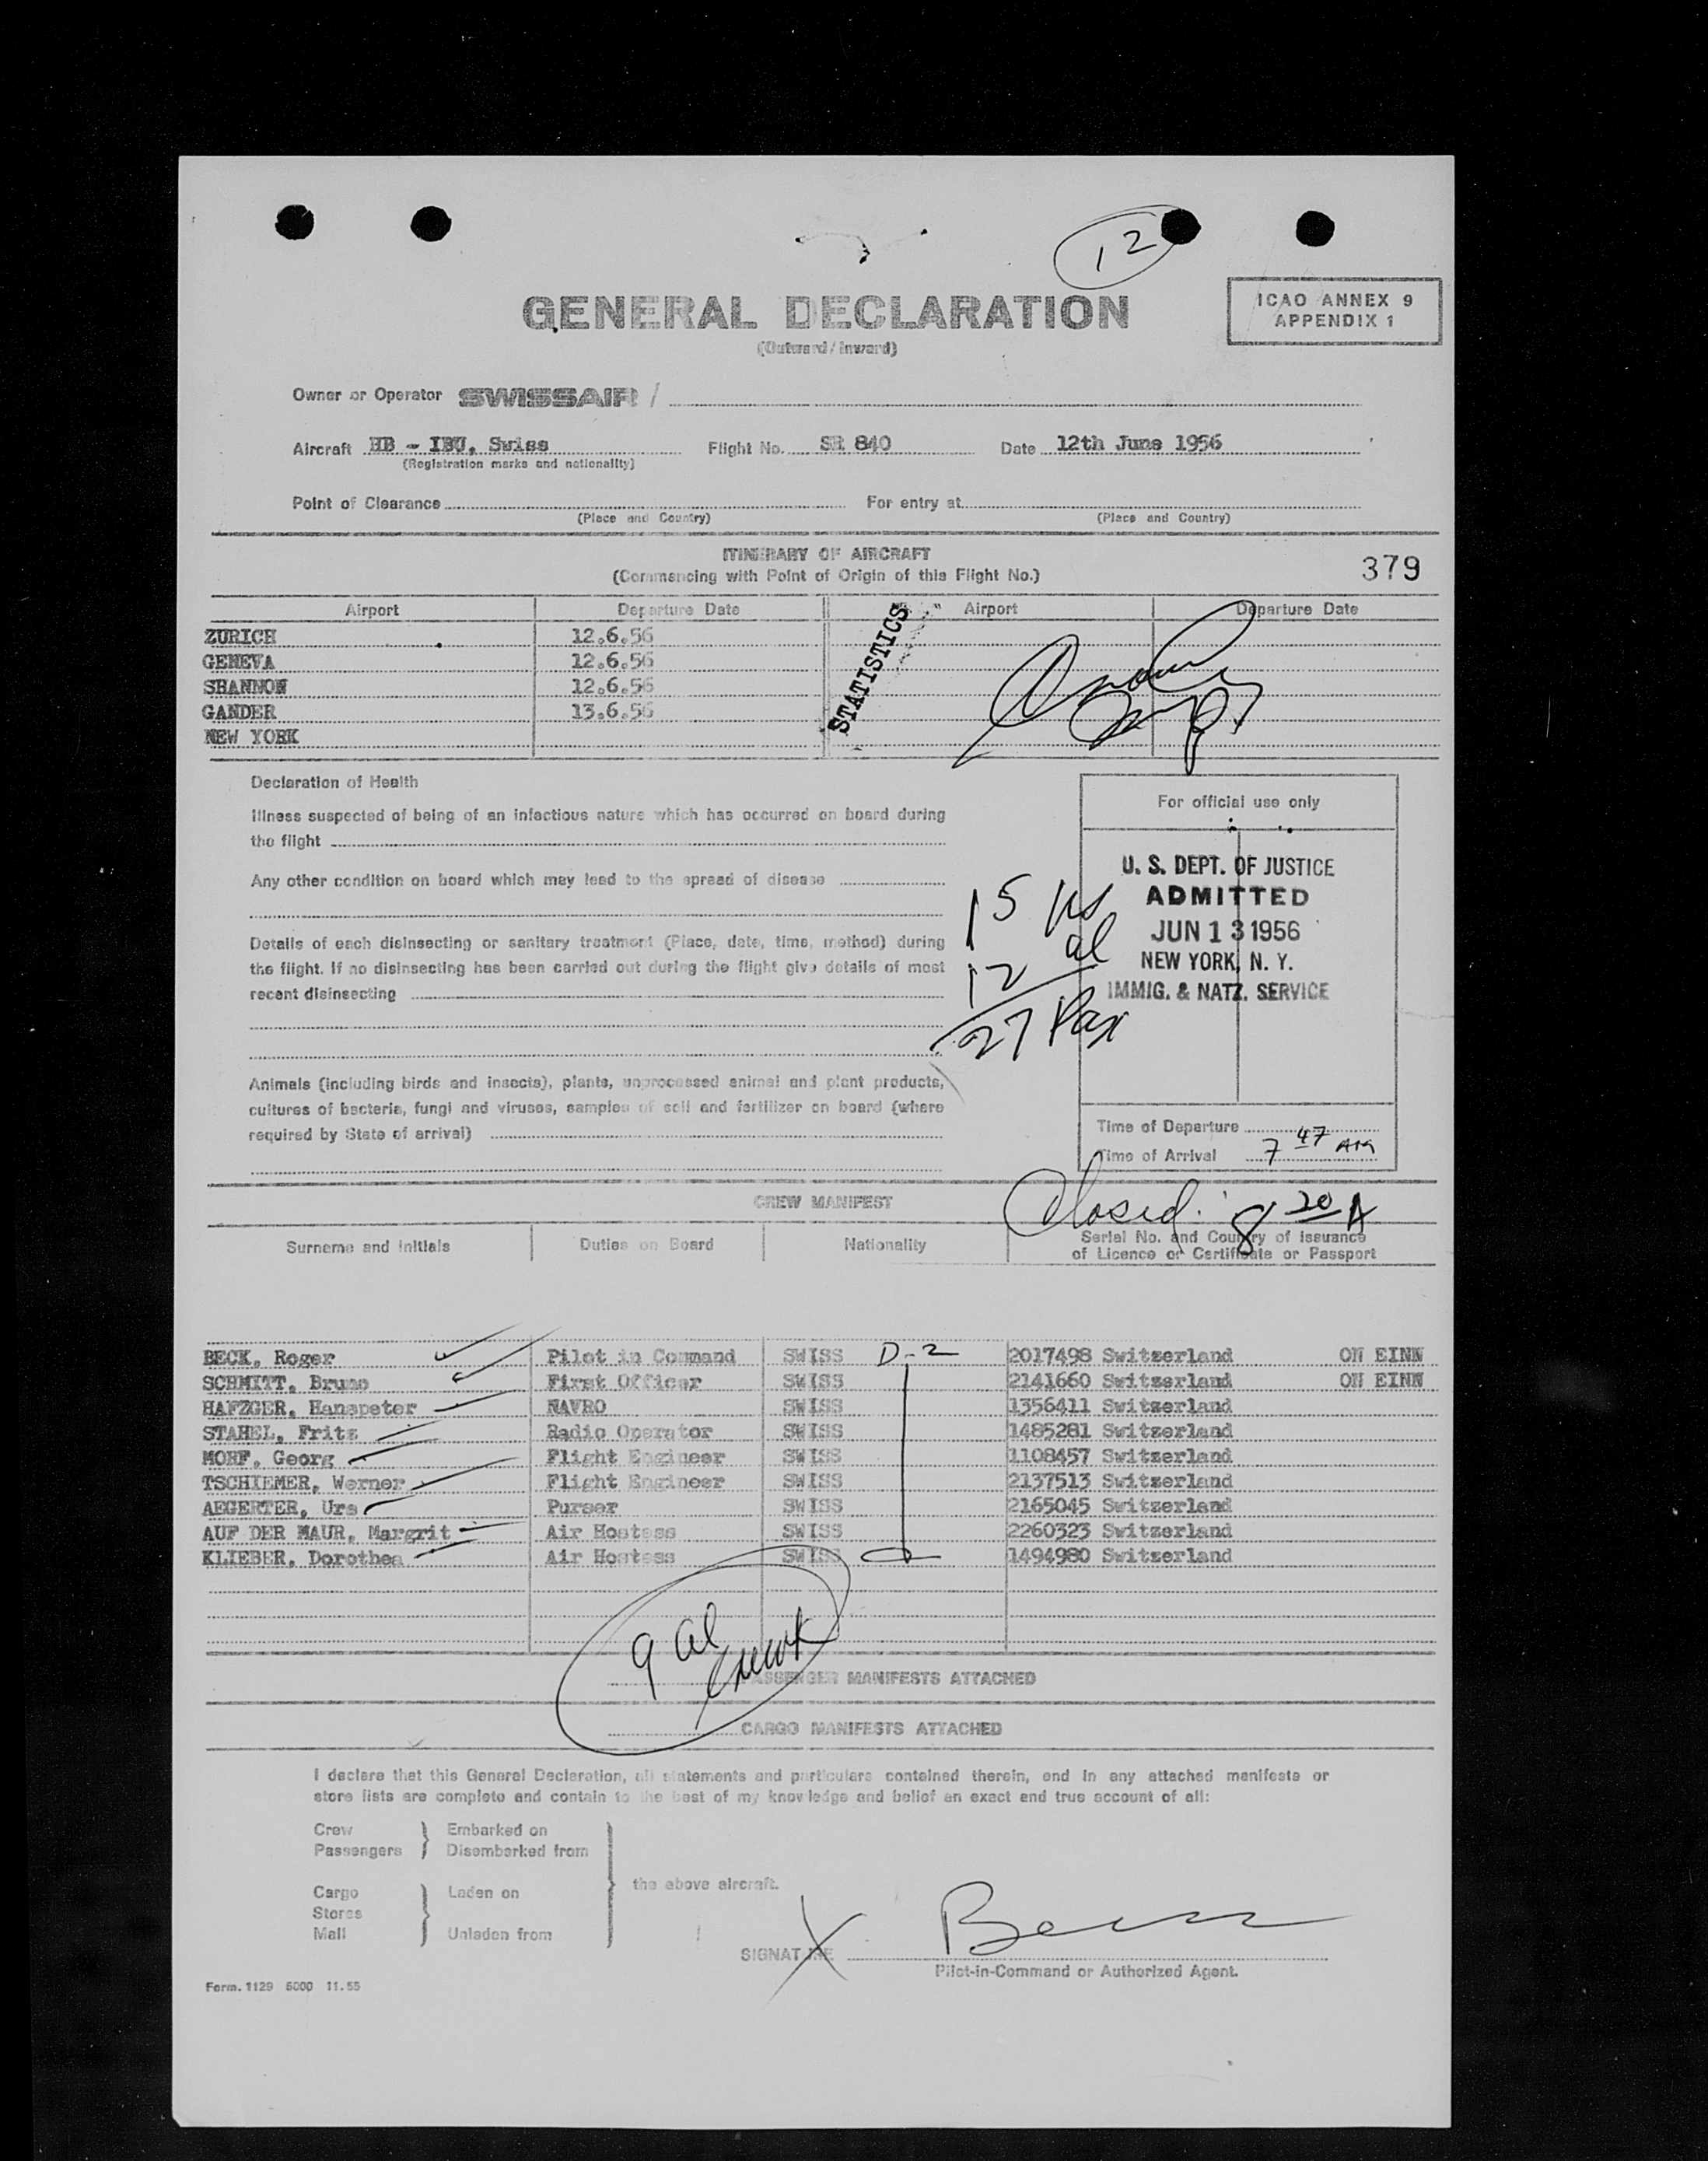 12
GENERAL DECLARATION
(Outward/Inward)
ICAO ANNEX 9
APPENDIX 1
Owner or Operator SWISSAIR /
Aircraft HB - IBU, Swiss Flight No. SR 840 Date 12th June 1956
(Registration marks and nationality)
Point of Clearance For entry at
(Place and Country) (Place and Country)
ITINERARY OF AIRCRAFT
(Commencing with Point of Origin of this Flight No.)
379
Airport Departure Date Airport Departure Date
ZURICH 12.6.56
GENEVA 12.6.56
SHANNON 12.6.56
GANDER 13.6.56
NEW YORK
STATISTICS
Declaration of Health
Illness suspected of being of an infectious nature which has occurred on board during
the flight
Any other condition on board which may lead to the spread of disease
Details of each disinsecting or sanitary treatment (Place, date, time, method) during
the flight. If no disinsecting has been carried out during the flight give details of most
recent disinsecting
Animals (including birds and insects), plants, unprocessed animal and plant products,
cultures of bacteria, fungi and viruses, samples of soil and fertilizer on board (where
required by State of arrival)
15 us
12 al
27 Pax
For official use only
U. S. DEPT. OF JUSTICE
ADMITTED
JUN 13 1956
NEW YORK, N. Y.
IMMIG. & NATZ. SERVICE
Time of Departure
Time of Arrival 7 47 AM
Closed: 8 20 A
CREW MANIFEST
Surname and Initials Duties on Board Nationality Serial No. and Country of Issuance
of Licence or Certificate or Passport
BECK, Roger Pilot in Command SWISS D-2 2017498 Switzerland ON EINN
SCHMITT, Bruno First Officer SWISS 2141660 Switzerland ON EINN
HAFZGER, Hanspeter NAVRO SWISS 1356411 Switzerland
STAHEL, Fritz Radio Operator SWISS 1485281 Switzerland
MORF, Georg Flight Engineer SWISS 1108457 Switzerland
TSCHIEMER, Werner Flight Engineer SWISS 2137513 Switzerland
AEGERTER, Urs Purser SWISS 2165045 Switzerland
AUF DER MAUR, Margrit Air Hostess SWISS 2260323 Switzerland
KLIEBER, Dorothea Air Hostess SWISS 1494980 Switzerland
9 al
crew
PASSENGER MANIFESTS ATTACHED
CARGO MANIFESTS ATTACHED
I declare that this General Declaration, all statements and particulars contained therein, and in any attached manifests or
store lists are complete and contain to the best of my knowledge and belief an exact and true account of all:
Crew Embarked on
Passengers Disembarked from
the above aircraft.
Cargo Laden on
Stores
Mail Unladen from
SIGNATURE X
Pilot-in-Command or Authorized Agent.
Form. 1129 5000 11.55